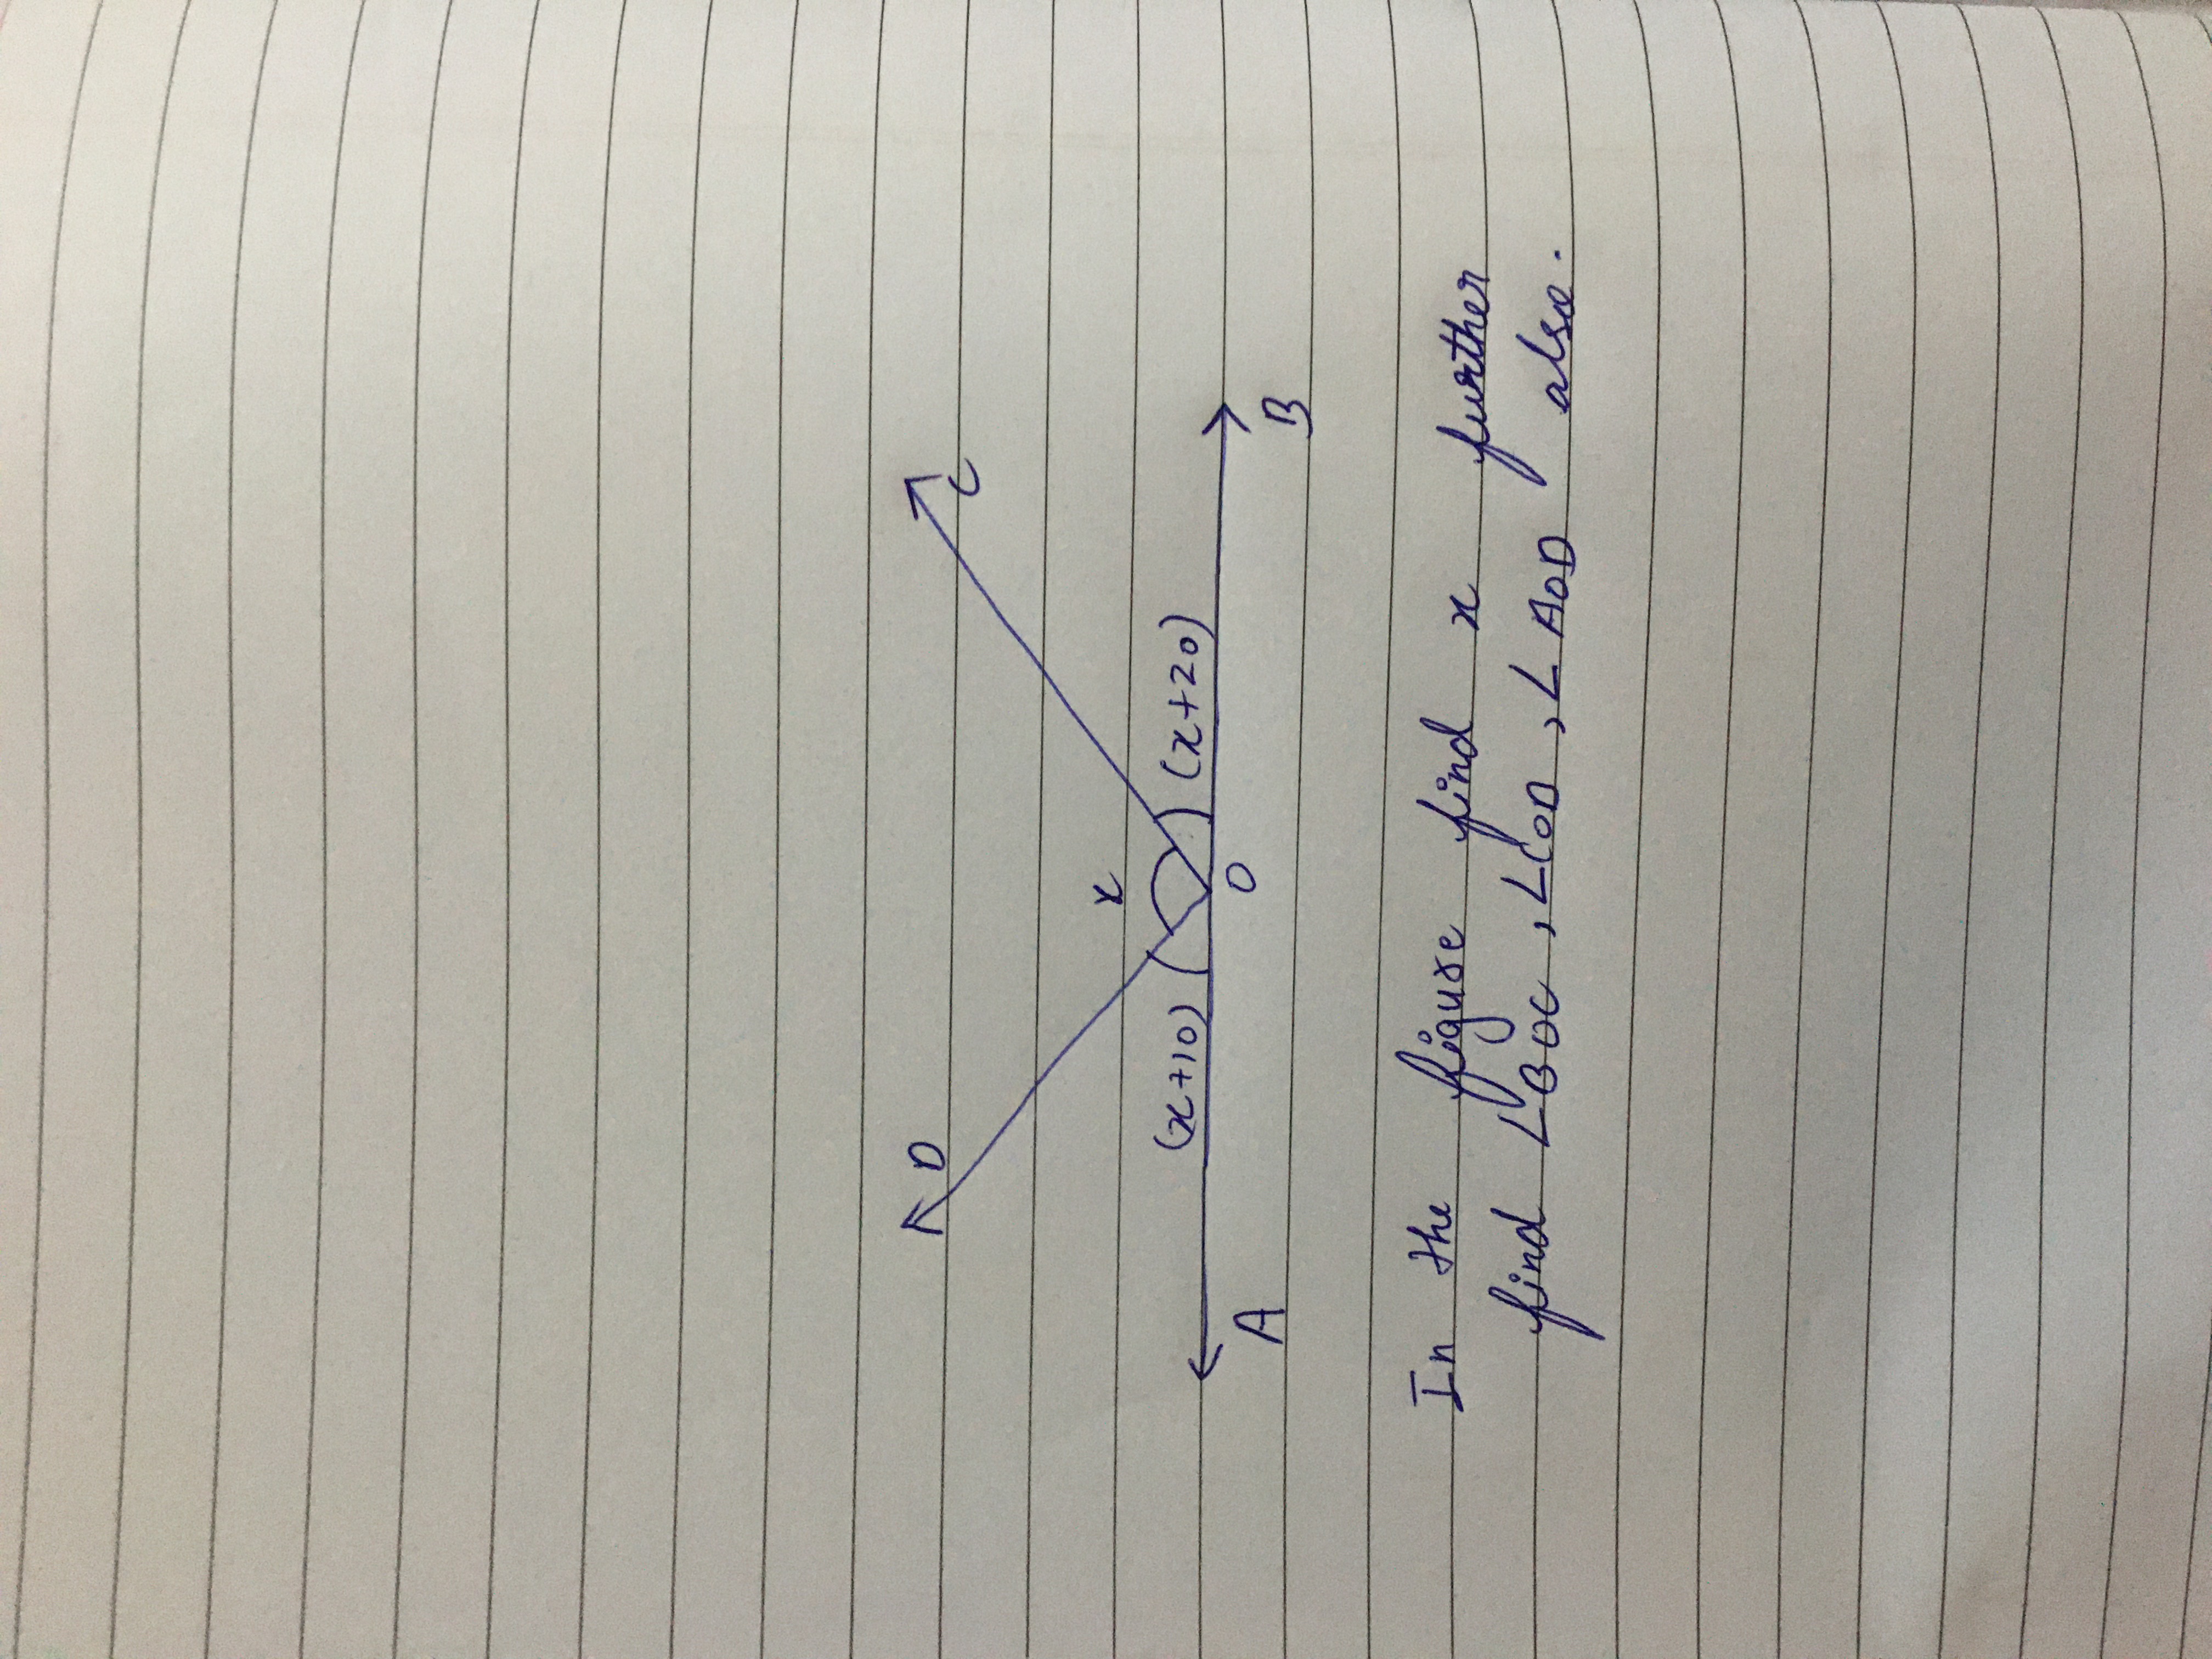 D
C
x
(x+10)
(x+20)
A
O
B
In the figure find x further
find ∠BOC, ∠COD, ∠AOD also.